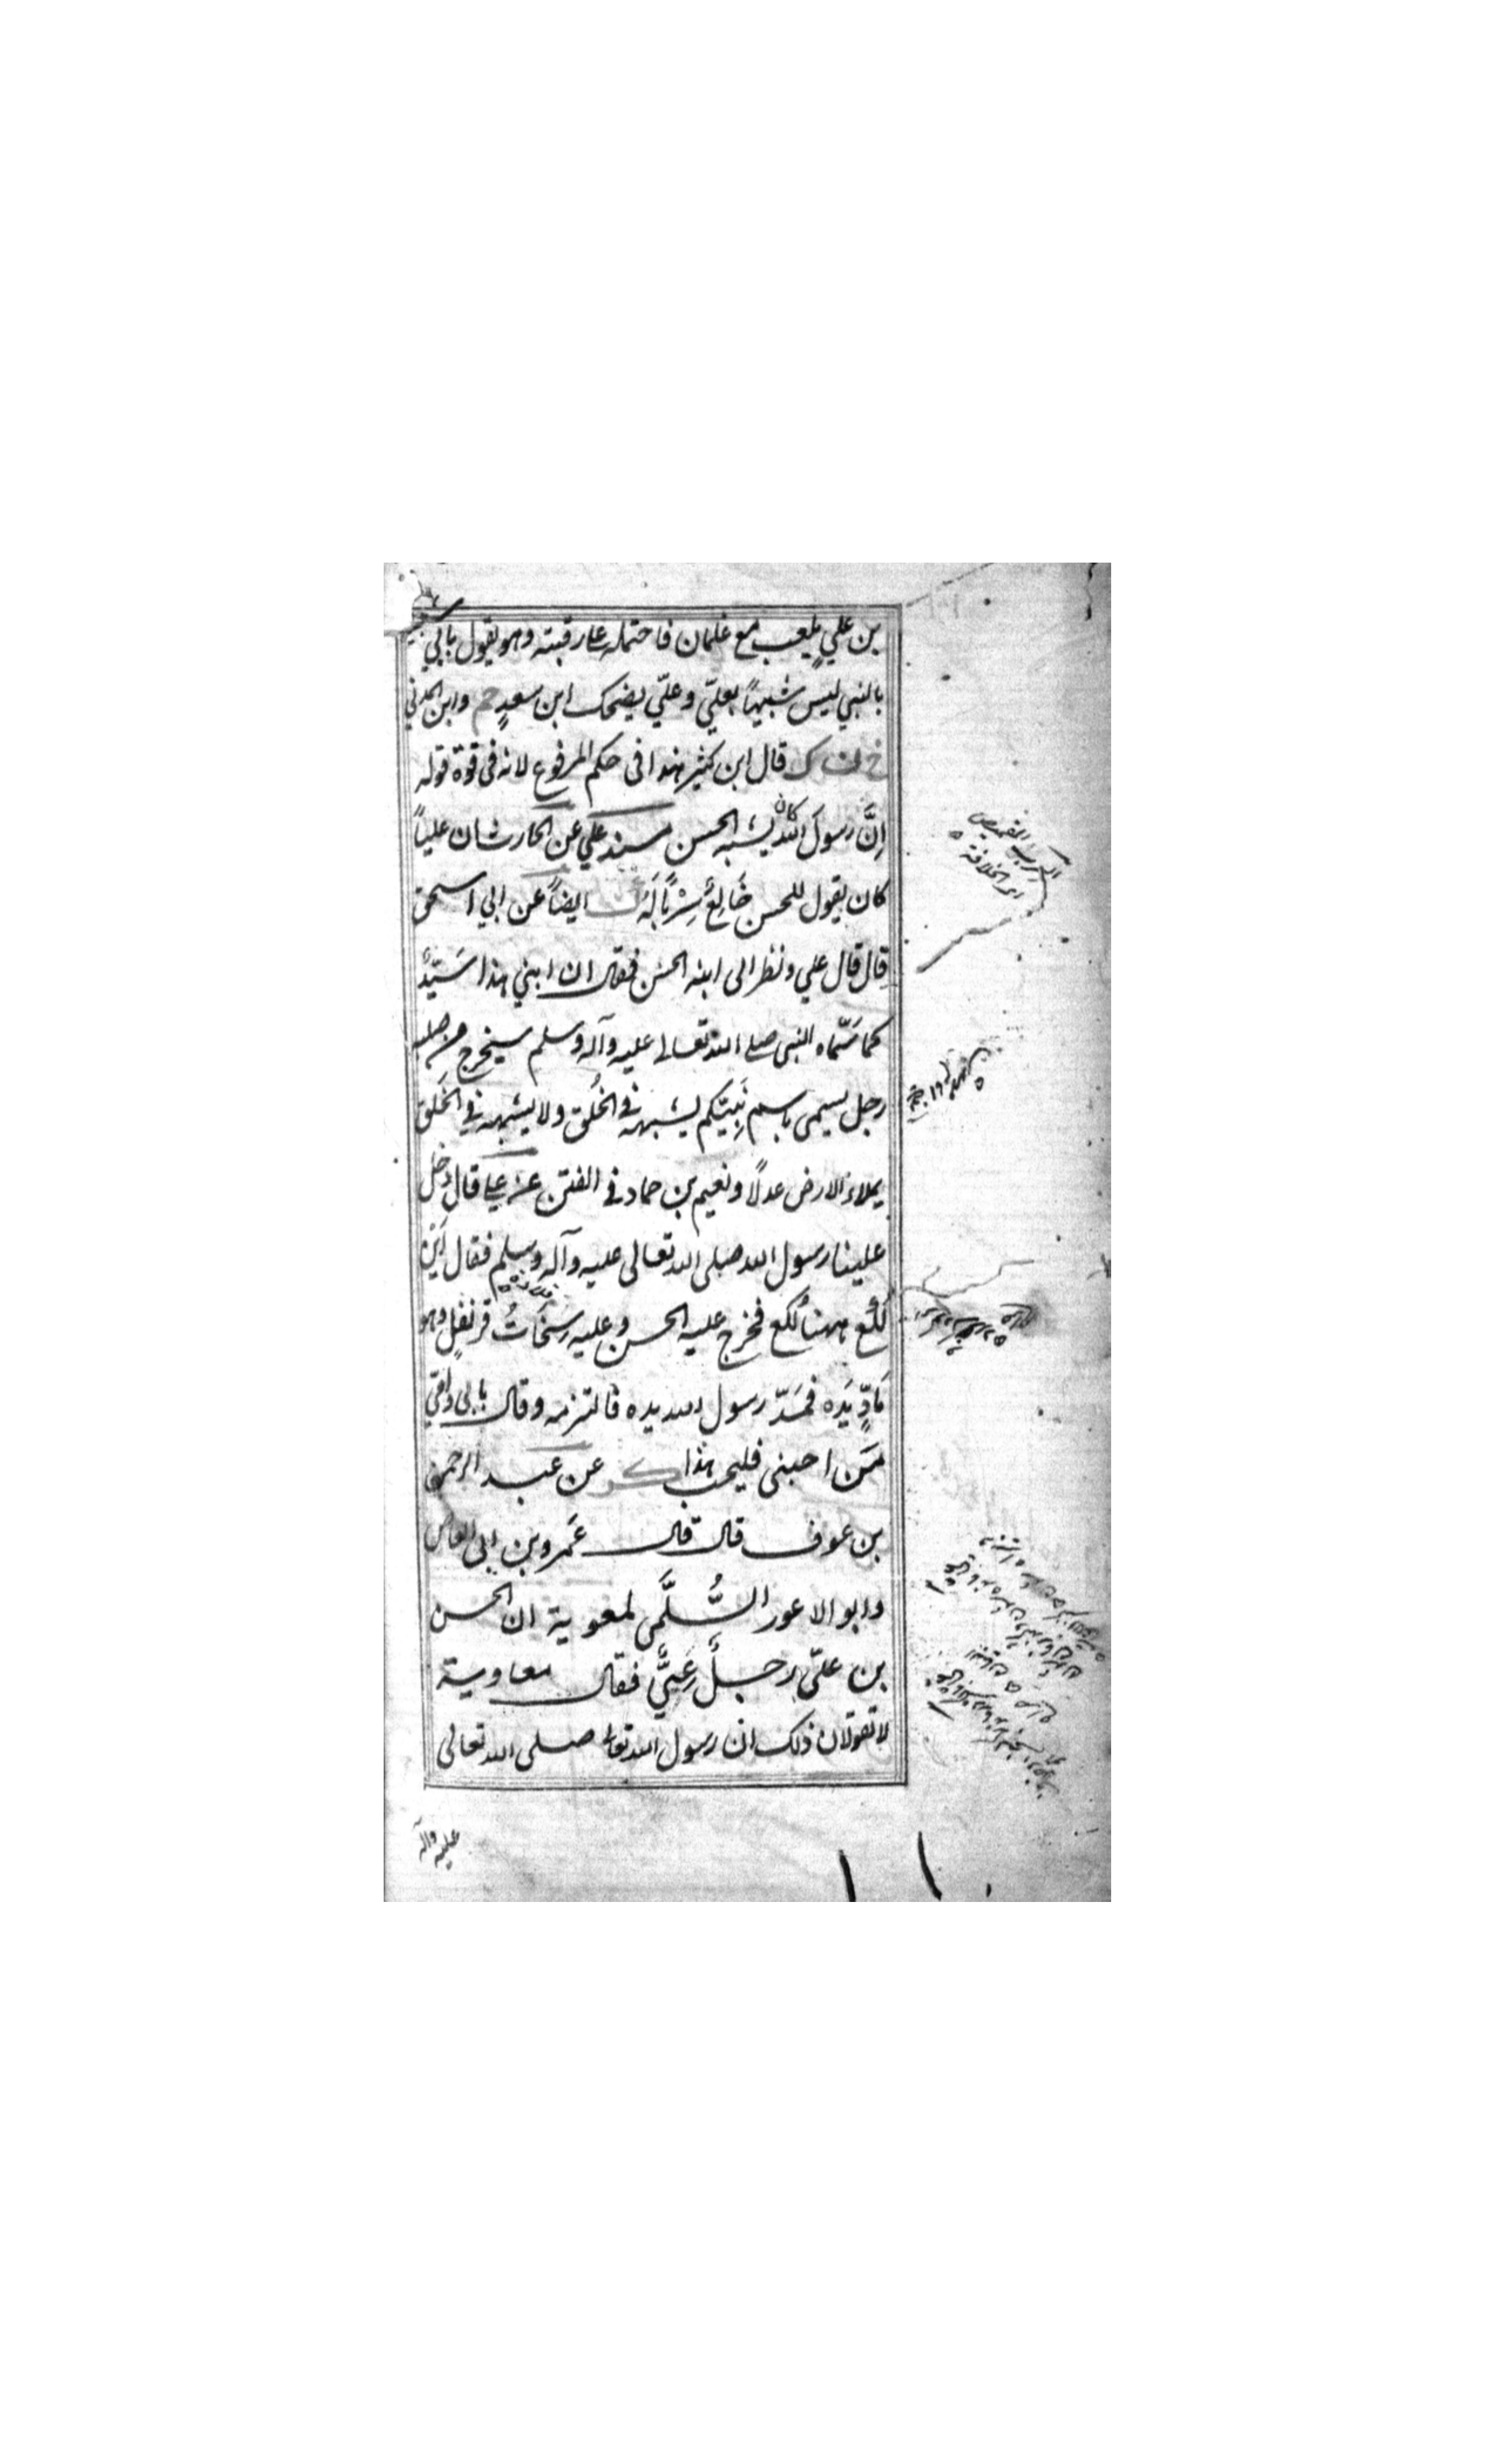 بن علي يلعب مع غلمان فاحتمله على رقبته وهو يقول بابي شبيه
بالنبي ليس شبيهاً بعليّ وعليّ يضحك ابن سعدٍ حم وابن المدني
خ ن ك قال ابن كثير هذا في حكم المرفوع لانه في قوة قوله
اِنَّ رسولَ الله كان يشبه الحسن مسند علي عن الحارث ان علياً
كان يقول للحسن خَالِعُ سِرْبَالَهُ ايضاً عن ابي اسحق
قال قال علي ونظر الى ابنه الحسن فقال ان ابني هذا سَيّدٌ
كما سَمّاه النبي صلى الله تعالى عليه وآله وسلم سيخرج من صلبه
رجل يسمى باسم نَبِيّكم يشبهه في الخُلق ولا يشبهه في الخَلق
يملاء الارض عدلاً ونعيم بن حماد في الفتن عن علي قال دخل
علينا رسول الله صلى الله تعالى عليه وآله وسلم فقال اَيْن
لُكَع ههنا لُكع فخرج عليه الحسن وعليه سِخَابُ قرنفلٍ وهو
مَادٌّ يَدَه فمَدّ رسول الله يده فالتزمه وقال بابي وامّي
مَن احبني فليحب هذا كر عن عبد الرحمن
بن عوف قال قال عَمرو بن ابي العاص
وابو الاعور السُّلَّمي لمعوية ان الحسن
بن عليّ رجلٌ عَيِيٌّ فقال معاوية
لا تقولان ذلك ان رسول الله تعالى صلى الله تعالى
عليه وآله
السربال القميص
امر الخلافة